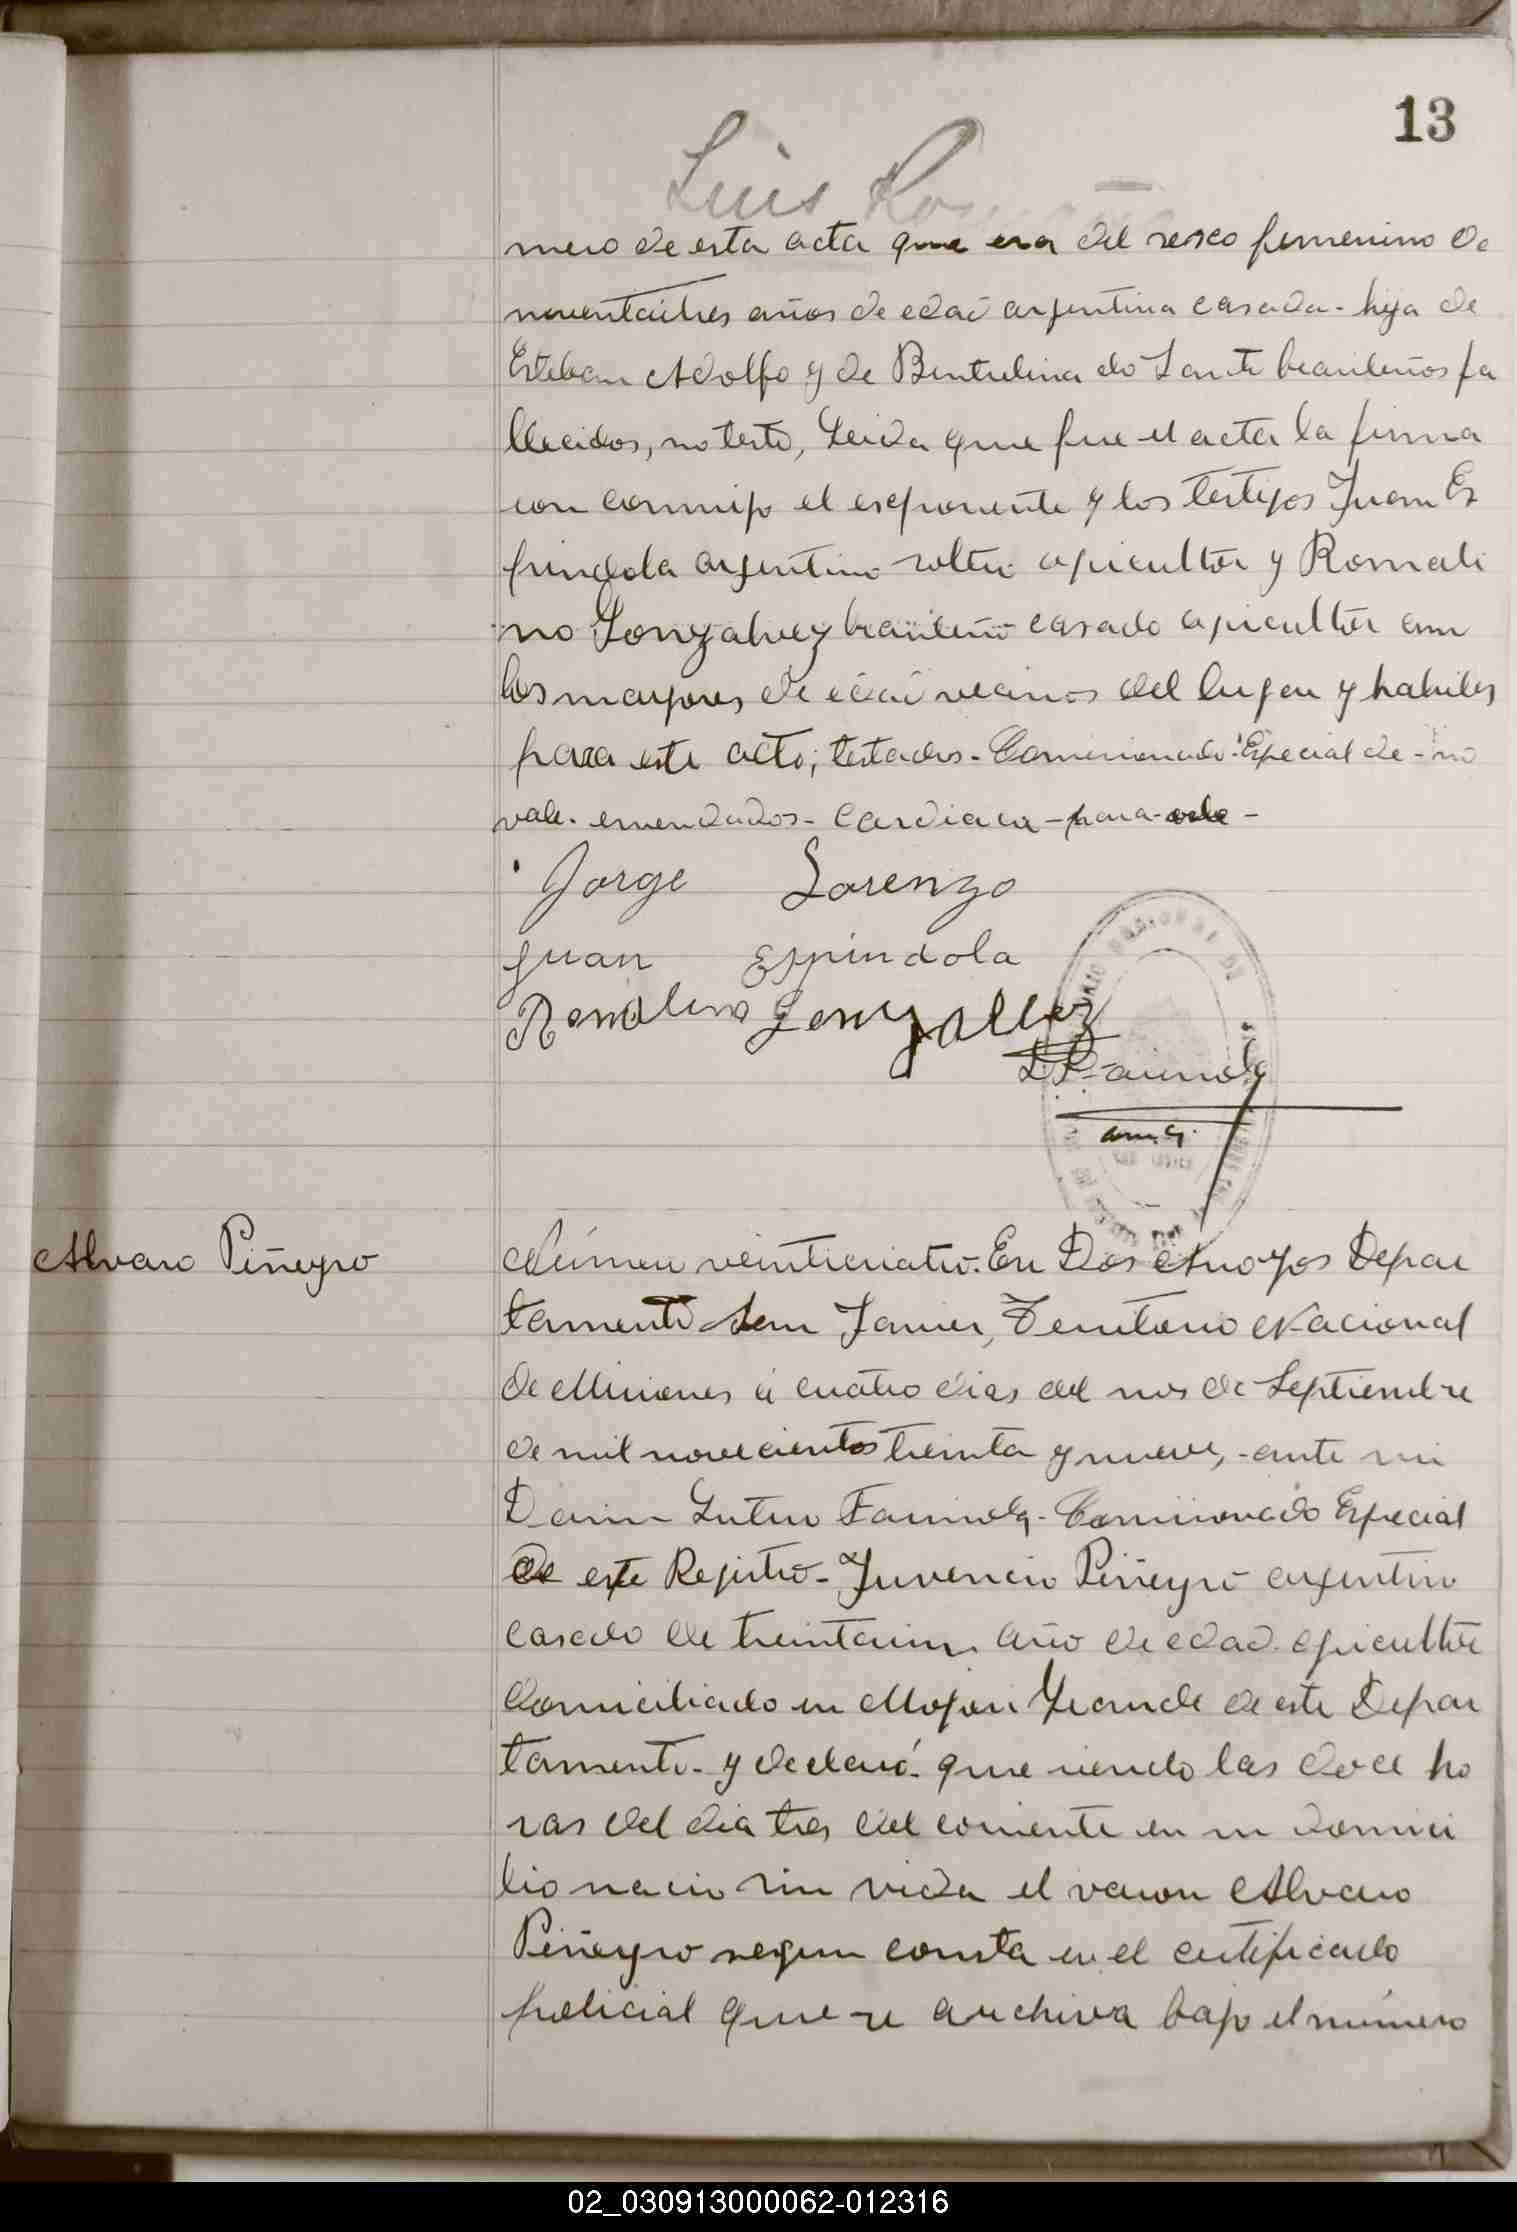 13
Luis Ro
mero de esta acta que era del sexso femenino de
noventaitres años de edad argentina casada - hija de
Esteban Adolfo y de Bentulina do Sante brasileños fa
llecidos, no testó, Leida que fue el acta la firma
con conmigo el esxponente y los testigos Juan Es
pindola argentino soltero agricultor y Romali
no Gonzalvez brasileño casado agricultor am
bos mayores de edad vecinos del lugar y habiles
para este acto; testados - Comisionado Especial de - no
vale. enmendados - cardiaca - para -
Jorge Lorenzo
Juan Espindola
Romalino Gonzallez
Alvaro Piñeyro
Número veinticuatro. En Dos Arroyos Depar
tamento San Javier, Territorio Nacional
de Misiones á cuatro dias del mes de Septiembre
de mil novecientos treinta y nueve, - ante mi
Comisionado Especial
de este Registro - Juvencio Piñeyro argentino
casado de treintaiun año de edad agricultor
domiciliado en Mojon Grande de este Depar
tamento - y declaró que siendo las doce ho
ras del dia tres del corriente en su domici
lio nacio sin vida el varon Alvaro
Piñeyro segun consta en el certificado
policial que se archiva bajo el número
02_030913000062-012316